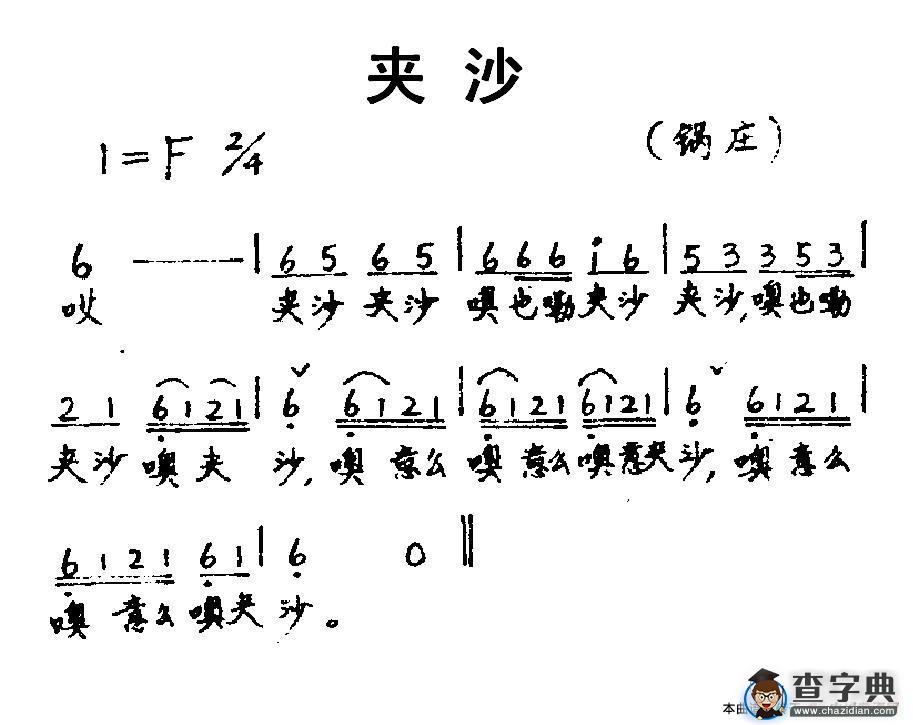 夹 沙
1=F 2/4 (锅庄)
6 —— | 6 5 6 5 | 6 6 6 i 6 | 5 3 3 5 3 |
哎 夹沙 夹沙 噢也嘞夹沙 夹沙,噢也嘞
2 1 6 1 2 1 | 6 ˇ 6 1 2 1 | 6 1 2 1 6 1 2 1 | 6 ˇ 6 1 2 1 |
夹沙噢夹 沙,噢意么 噢意么噢意夹沙,噢意么
6 1 2 1 6 1 | 6 0 ‖
噢意么噢夹沙。
查字典
www.chazidian.com
本曲